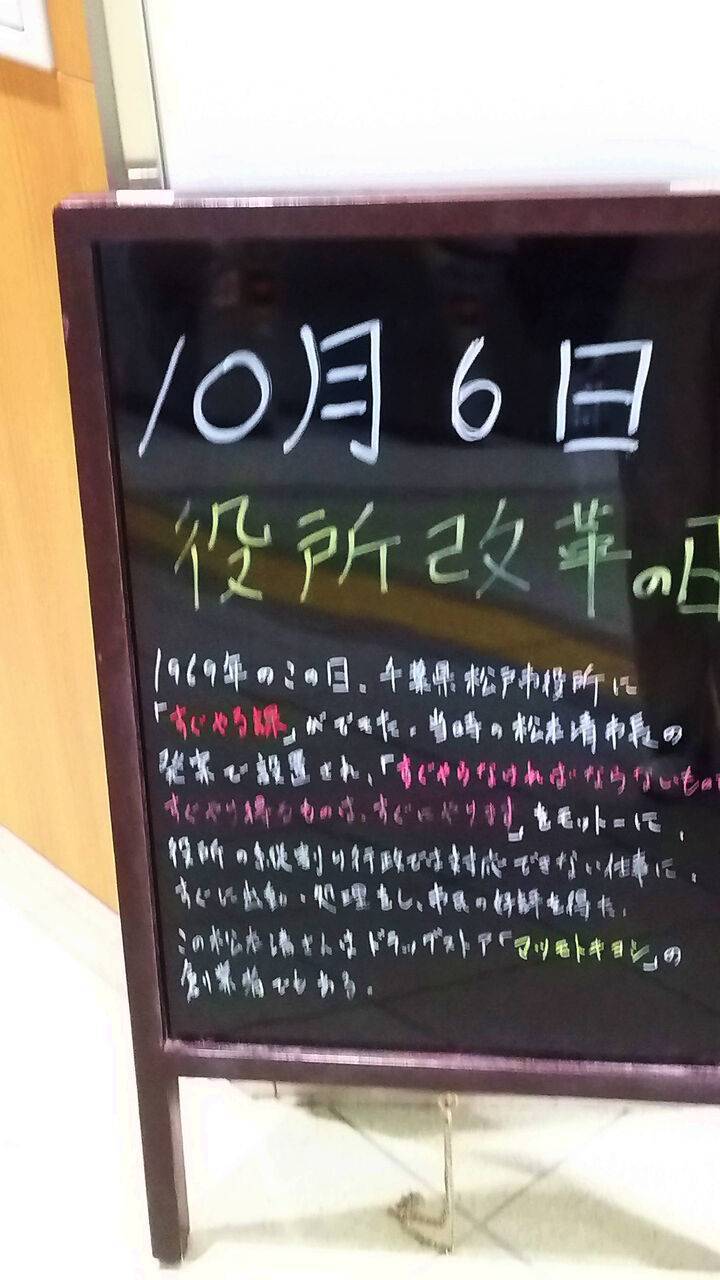 10月6日
役所改革の日
1969年のこの日、千葉県松戸市役所に
「すぐやる課」ができた。当時の松本清市長の
発案で設置され、「すぐやらなければならないもので
すぐやり得るものは、すぐにやります」をモットーに、
役所の縦割り行政では対応できない仕事に、
すぐに出動・処理をし、市民の好評を得た。
この松本清さんはドラッグストア「マツモトキヨシ」の
創業者でもある。